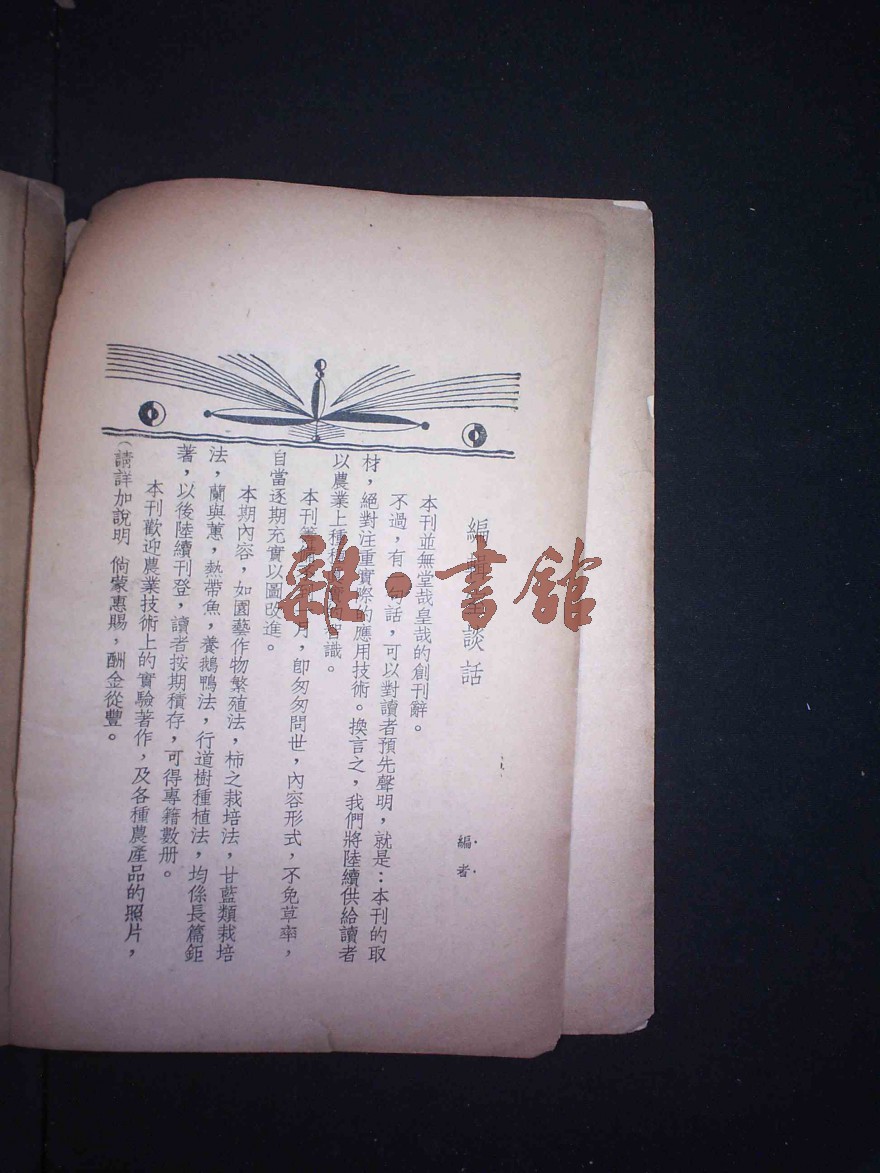 編談話
編者
本刊並無堂哉皇哉的創刊辭。
不過，有一句話，可以對讀者預先聲明，就是：本刊的取
材，絕對注重實際的應用技術。換言之，我們將陸續供給讀者
以農業上種種智識。
本刊籌月，卽匆匆問世，內容形式，不免草率，
自當逐期充實以圖改進。
本期內容，如園藝作物繁殖法，柿之栽培法，甘藍類栽培
法，蘭與蕙，熱帶魚，養鵝鴨法，行道樹種植法，均係長篇鉅
著，以後陸續刊登，讀者按期積存，可得專籍數册。
本刊歡迎農業技術上的實驗著作，及各種農產品的照片，
（請詳加說明 倘蒙惠賜，酬金從豐。
雜·書館